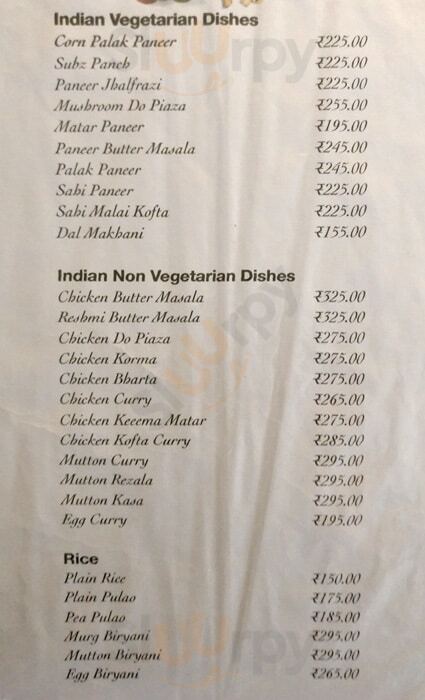 Indian Vegetarian Dishes
Corn Palak Paneer ₹225.00
Subz Panch ₹225.00
Paneer Jhalfrazi ₹225.00
Mushroom Do Piaza ₹255.00
Matar Paneer ₹195.00
Paneer Butter Masala ₹245.00
Palak Paneer ₹245.00
Sahi Paneer ₹225.00
Sahi Malai Kofta ₹225.00
Dal Makhani ₹155.00
Indian Non Vegetarian Dishes
Chicken Butter Masala ₹325.00
Reshmi Butter Masala ₹325.00
Chicken Do Piaza ₹275.00
Chicken Korma ₹275.00
Chicken Bharta ₹275.00
Chicken Curry ₹265.00
Chicken Keeema Matar ₹275.00
Chicken Kofta Curry ₹285.00
Mutton Curry ₹295.00
Mutton Rezala ₹295.00
Mutton Kasa ₹295.00
Egg Curry ₹195.00
Rice
Plain Rice ₹150.00
Plain Pulao ₹175.00
Pea Pulao ₹185.00
Murg Biryani ₹295.00
Mutton Biryani ₹295.00
Egg Biryani ₹265.00